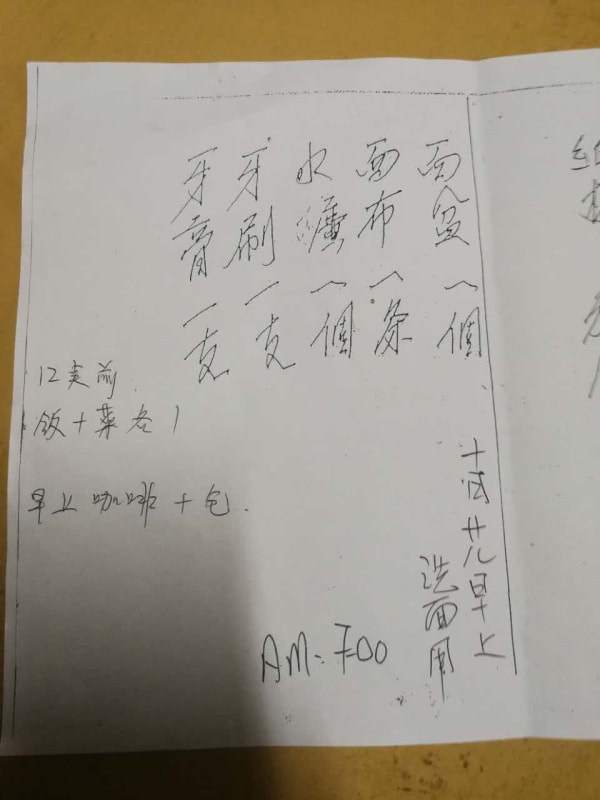 面盆一個
面布一条
水壺一個
牙刷一支
牙膏一支
早上
洗面用
AM: 7:00
12点前
飯+菜各1
早上咖啡+包